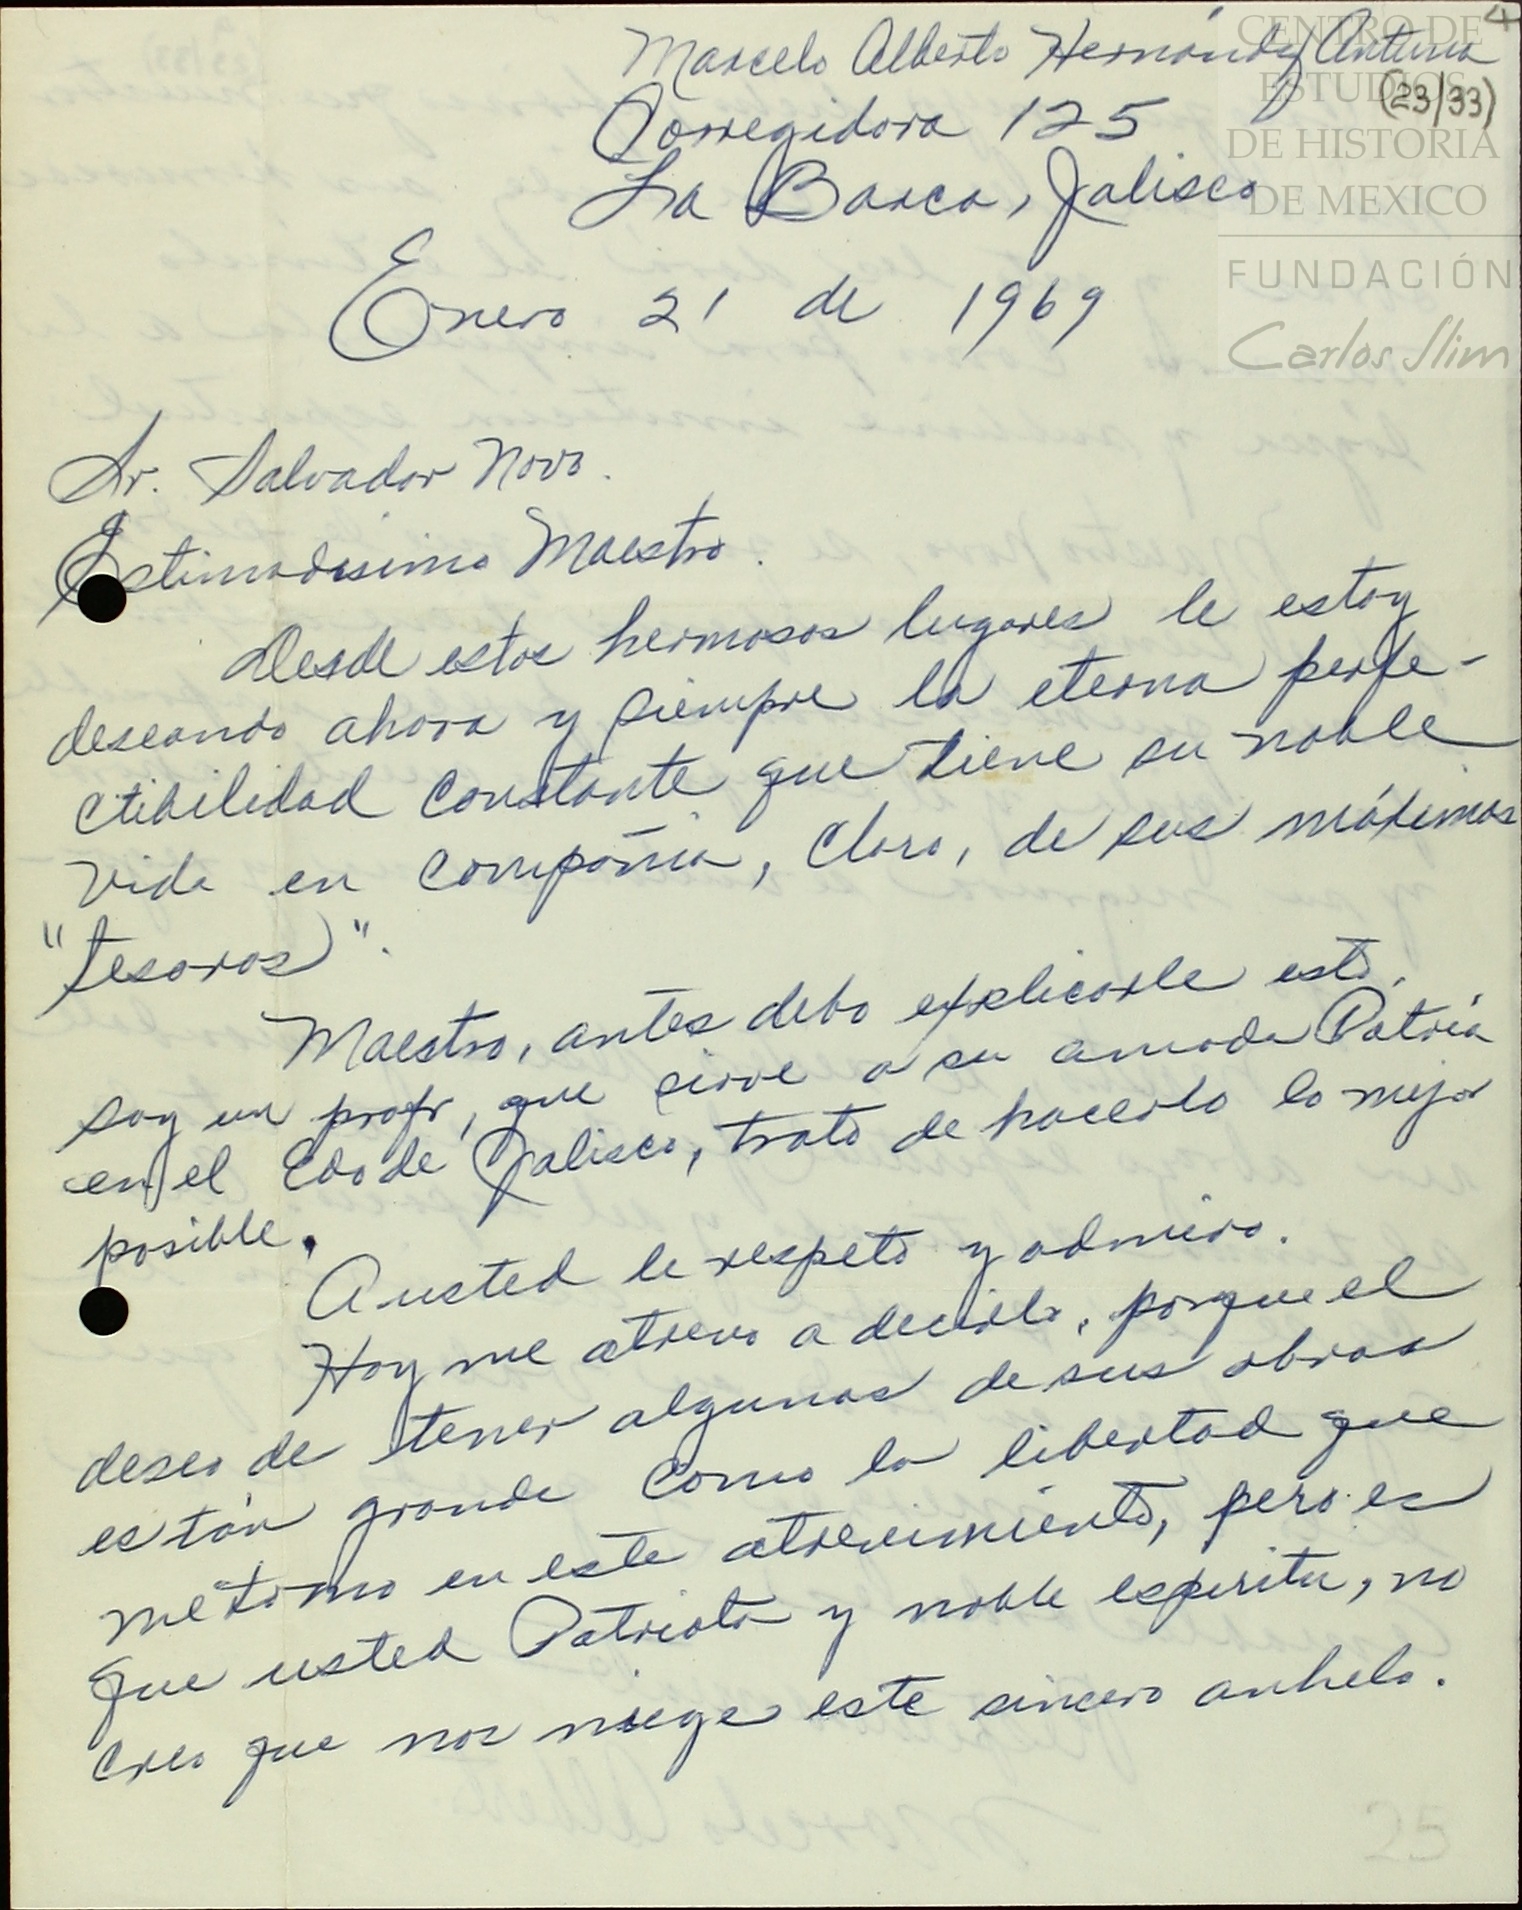 4
Marcelo Alberto Hernández Antuna
(23/33)
Corregidora 125
La Barca, Jalisco
CENTRO DE
ESTUDIOS
DE HISTORIA
DE MEXICO
FUNDACIÓN
Carlos Slim
Enero 21 de 1969
Sr. Salvador Novo.
Estimadisimo Maestro.
Desde estos hermosos lugares le estoy
deseando ahora y siempre la eterna perfe-
ctibilidad constante que tiene su noble
vida en compañia, claro, de sus máximos
"tesoros".
Maestro, antes debo explicarle esto,
soy un profr, que sirve a su amada Patria
en el Edo de Jalisco, trato de hacerlo lo mejor
posible.
A usted le respeto y admiro.
Hoy me atrevo a decirlo, porque el
deseo de tener algunas de sus obras
es tán grande como la libertad que
me tomo en este atrevimiento, pero es
que usted Patriota y noble espiritu, no
creo que nos niege este sincero anhelo.
25